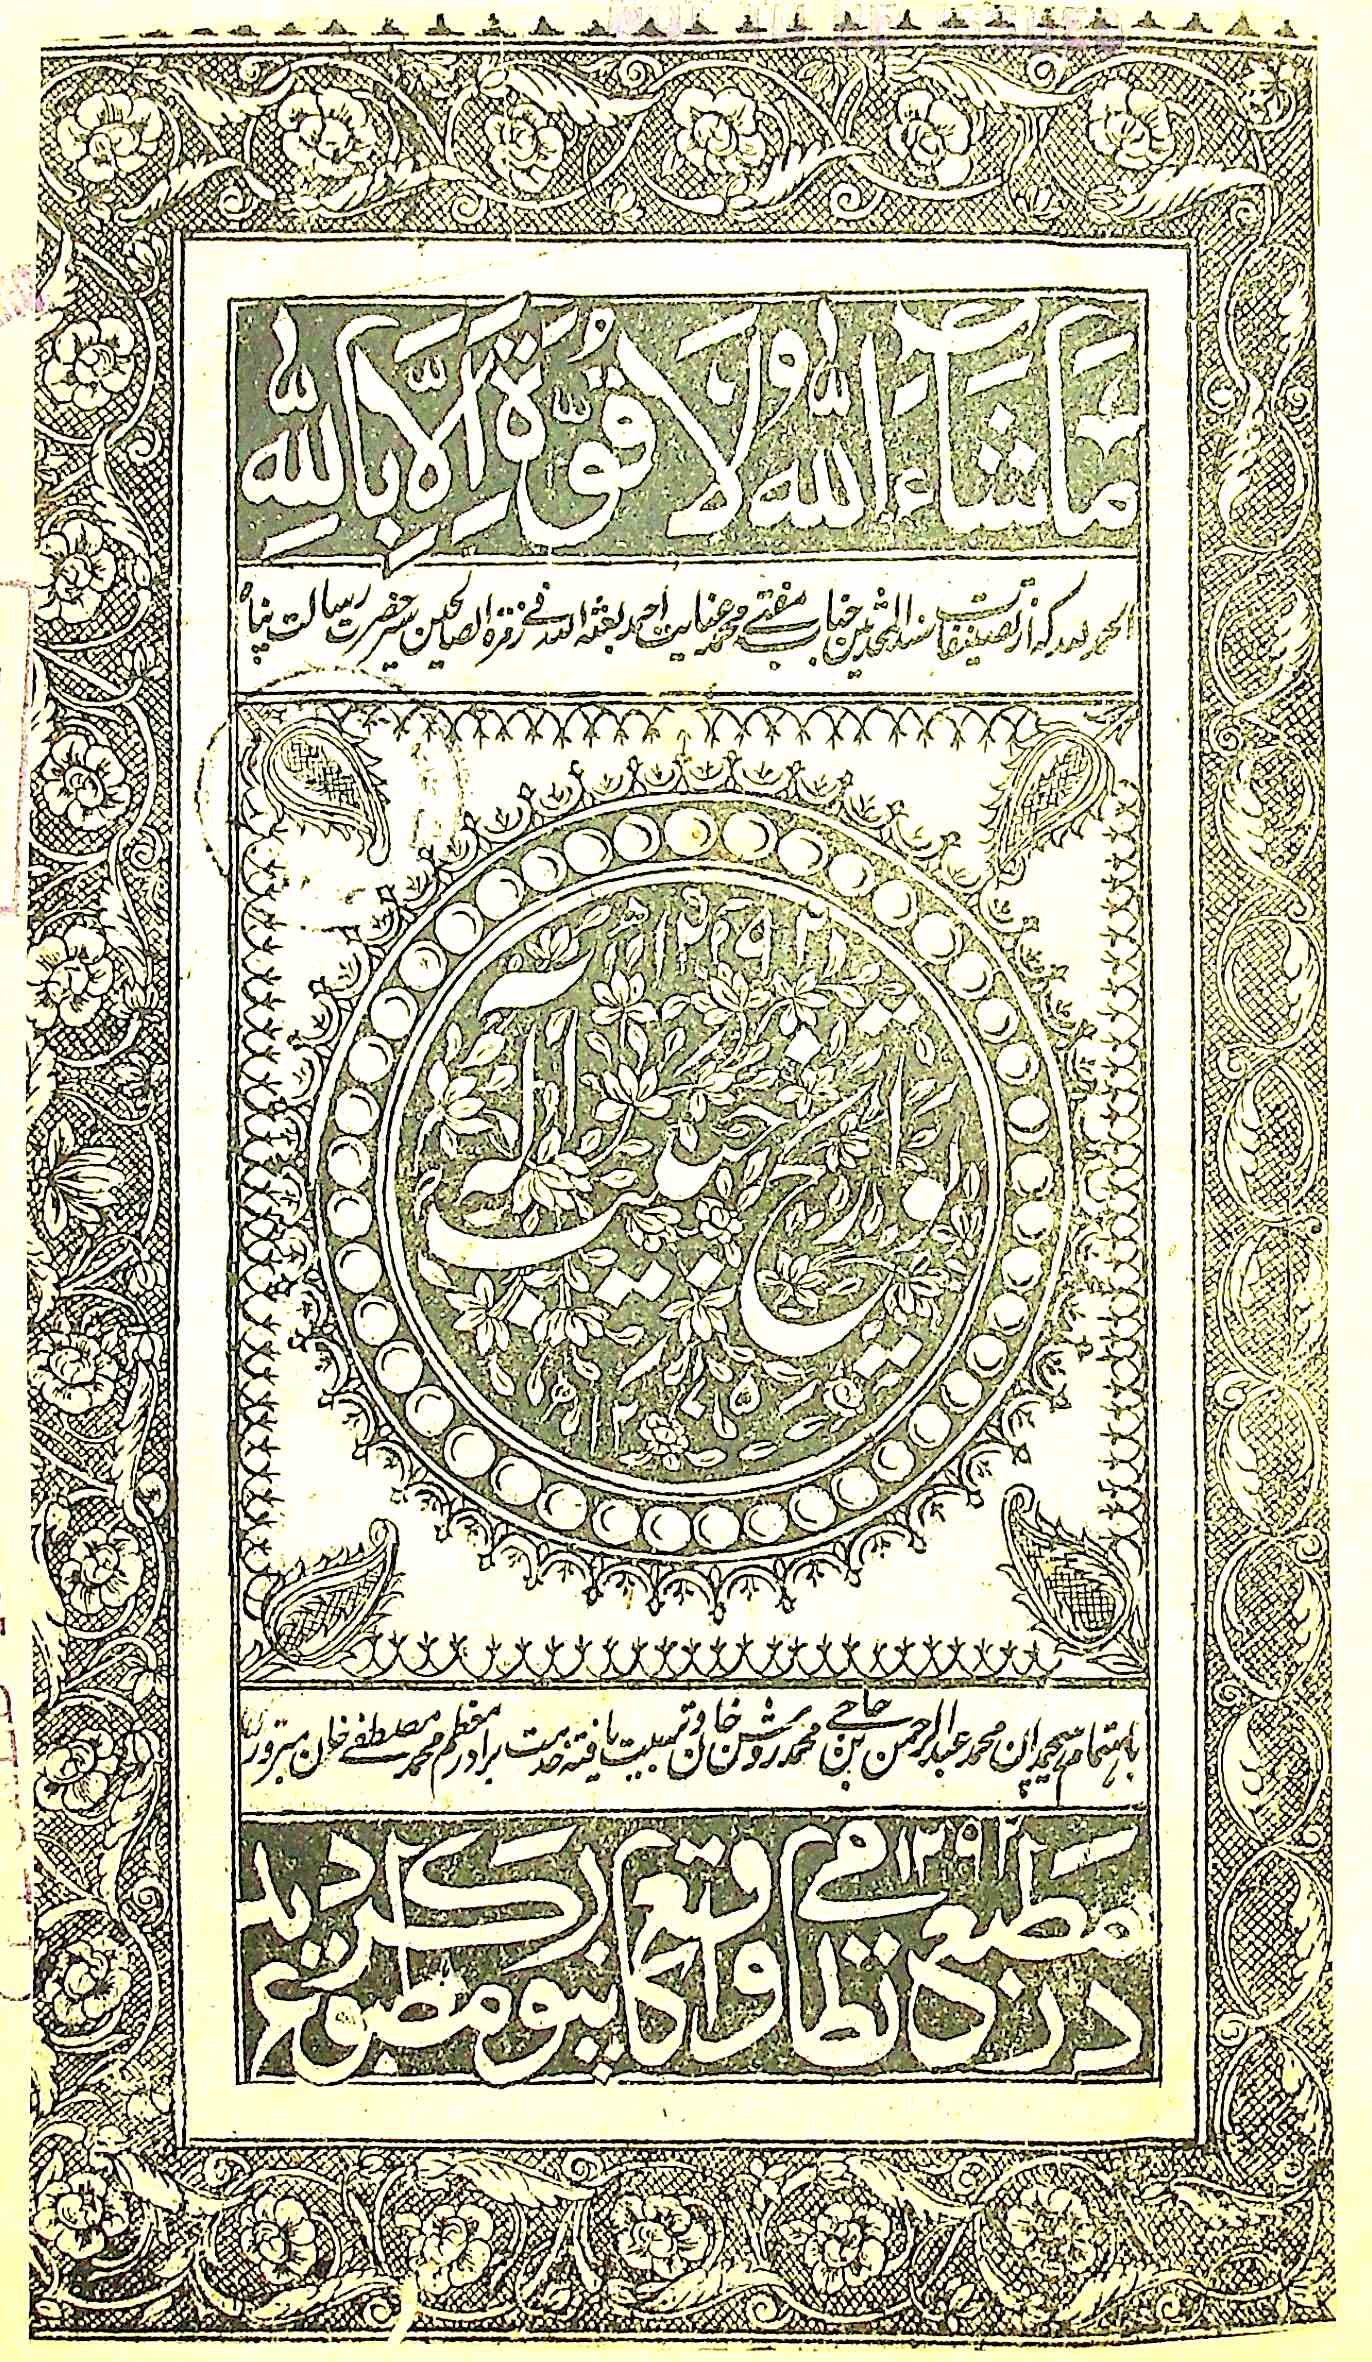 مَا شَآءَ اللّٰهُ وَلَا قُوَّةَ اِلَّا بِاللّٰهِ
الحمد لله که از تصنیفات سند المحدثین جناب مفتی محمد عنایت احمد بعثه الله فی زمرة الصالحین سیر حضرت رسالت پناه
۱۲۹۲ھ
تواریخ حبیب الہ
۱۲۷۵ھ
باهتمام هیچمدان محمد عبد الرحمن بن حاجی محمد روشن خان تربیت یافته خدمت برادر معظم محمد مصطفی خان مبرور
در مطبع نظامی ۱۲۹۲ واقع کانپور مطبوع گردید